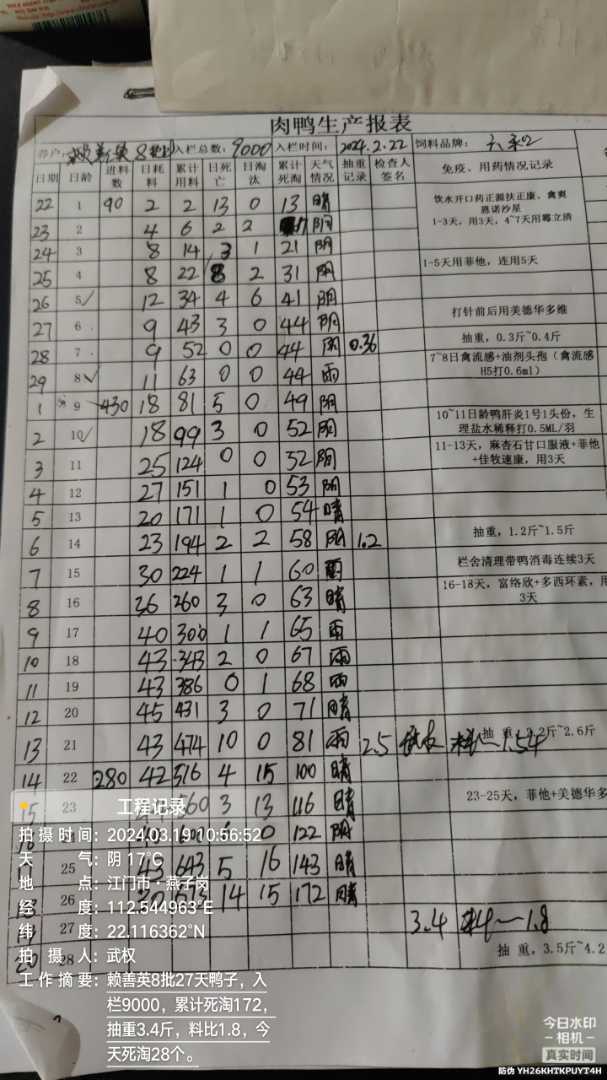 肉鸭生产报表
养户: 赖善英 8批 入栏总数: 9000 入栏时间: 2024.2.22 饲料品牌:
日期 日龄 进料数 日耗料 累计用料 日死亡 日淘汰 累计死淘 天气情况 抽重记录 检查人签名 免疫、用药情况记录
22 1 90 2 2 13 0 13 晴 饮水开口药正源扶正康、禽爽
恩诺沙星
1-3天,用3天,4~7天用霉立清
23 2 4 6 2 2 17 阴
24 3 8 14 3 1 21 阴
25 4 8 22 8 2 31 阴 1-5天用菲他,连用5天
26 5 12 34 4 6 41 阴
27 6 9 43 3 0 44 阴 打针前后用美德华多维
28 7 9 52 0 0 44 阴 0.36 抽重,0.3斤~0.4斤
29 8 11 63 0 0 44 雨 7~8日禽流感+油剂头孢(禽流感
H5打0.6ml)
1 9 430 18 81 5 0 49 阴
2 10 18 99 3 0 52 阴 10~11日龄鸭肝炎1号1头份,生
理盐水稀释打0.5ML/羽
3 11 25 124 0 0 52 阴 11-13天,麻杏石甘口服液+菲他
+佳牧速康,用3天
4 12 27 151 1 0 53 阴
5 13 20 171 1 0 54 晴
6 14 23 194 2 2 58 阴 1.2 抽重,1.2斤~1.5斤
7 15 30 224 1 1 60 栏舍清理带鸭消毒连续3天
8 16 36 260 3 0 63 晴 16-18天,富络欣+多西环素,用
3天
9 17 40 300 1 1 65 雨
10 18 43 343 2 0 67 雨
11 19 43 386 0 1 68 雨
12 20 45 431 3 0 71 晴
13 21 43 474 10 0 81 雨 2.5 料 1.54 抽 重 2.2斤~2.6斤
14 22 280 42 516 4 15 100 晴
15 23 560 3 13 116 晴 23-25天,菲他+美德华多
0 122 阴
25 43 643 5 16 143 晴
26 14 15 172 晴
27 3.4 料 1.8
20 28 抽 重,3.5斤~4.2
工程记录
拍摄时间: 2024.03.19 10:56:52
天 气: 阴 17℃
地 点: 江门市·燕子岗
经 度: 112.544963°E
纬 度: 22.116362°N
拍 摄 人: 武权
工作摘要: 赖善英8批27天鸭子,入
栏9000,累计死淘172,
抽重3.4斤,料比1.8,今
天死淘28个。
今日水印
相机
真实时间
防伪 YH26KHTKPUYT4H